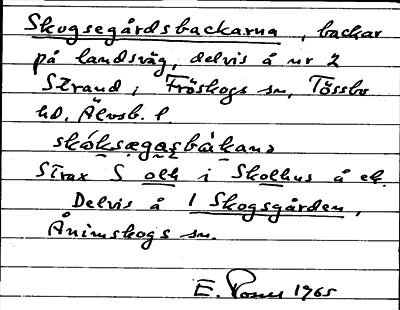 Skogsegårdsbackarna, backar
på landsväg, delvis å nr 2
Strand i Fröskogs sn, Tössbo
hd, Älvsb. l.
skóksægasbàkană
Strax S och i Skolhus å ek.
Delvis å 1 Skogsgården,
Ånimskogs sn.
E. 1965